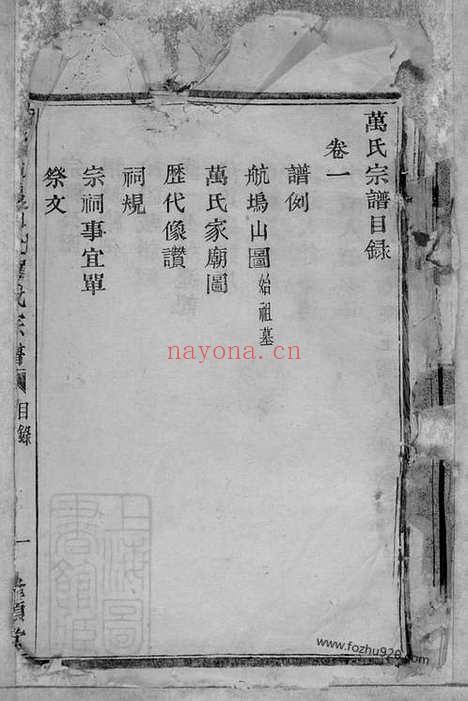 萬氏宗譜目錄
卷一
譜例
航塢山圖始祖墓
萬氏家廟圖
歷代像讚
祠規
宗祠事宜單
祭文
氏宗譜
目錄
一
nayona.cn
上海圖書館藏
www.fozhu920.com